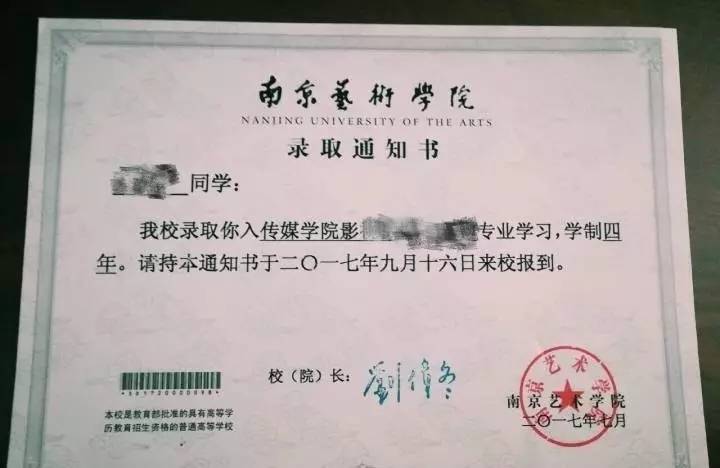 南京藝術學院
NANJING UNIVERSITY OF THE ARTS
录取通知书
同学：
我校录取你入传媒学院影 专业学习，学制四
年。请持本通知书于二〇一七年九月十六日来校报到。
校（院）长：劉偉冬
南京艺术学院
南京艺术学院
二〇一七年七月
本校是教育部批准的具有高等学
历教育招生资格的普通高等学校